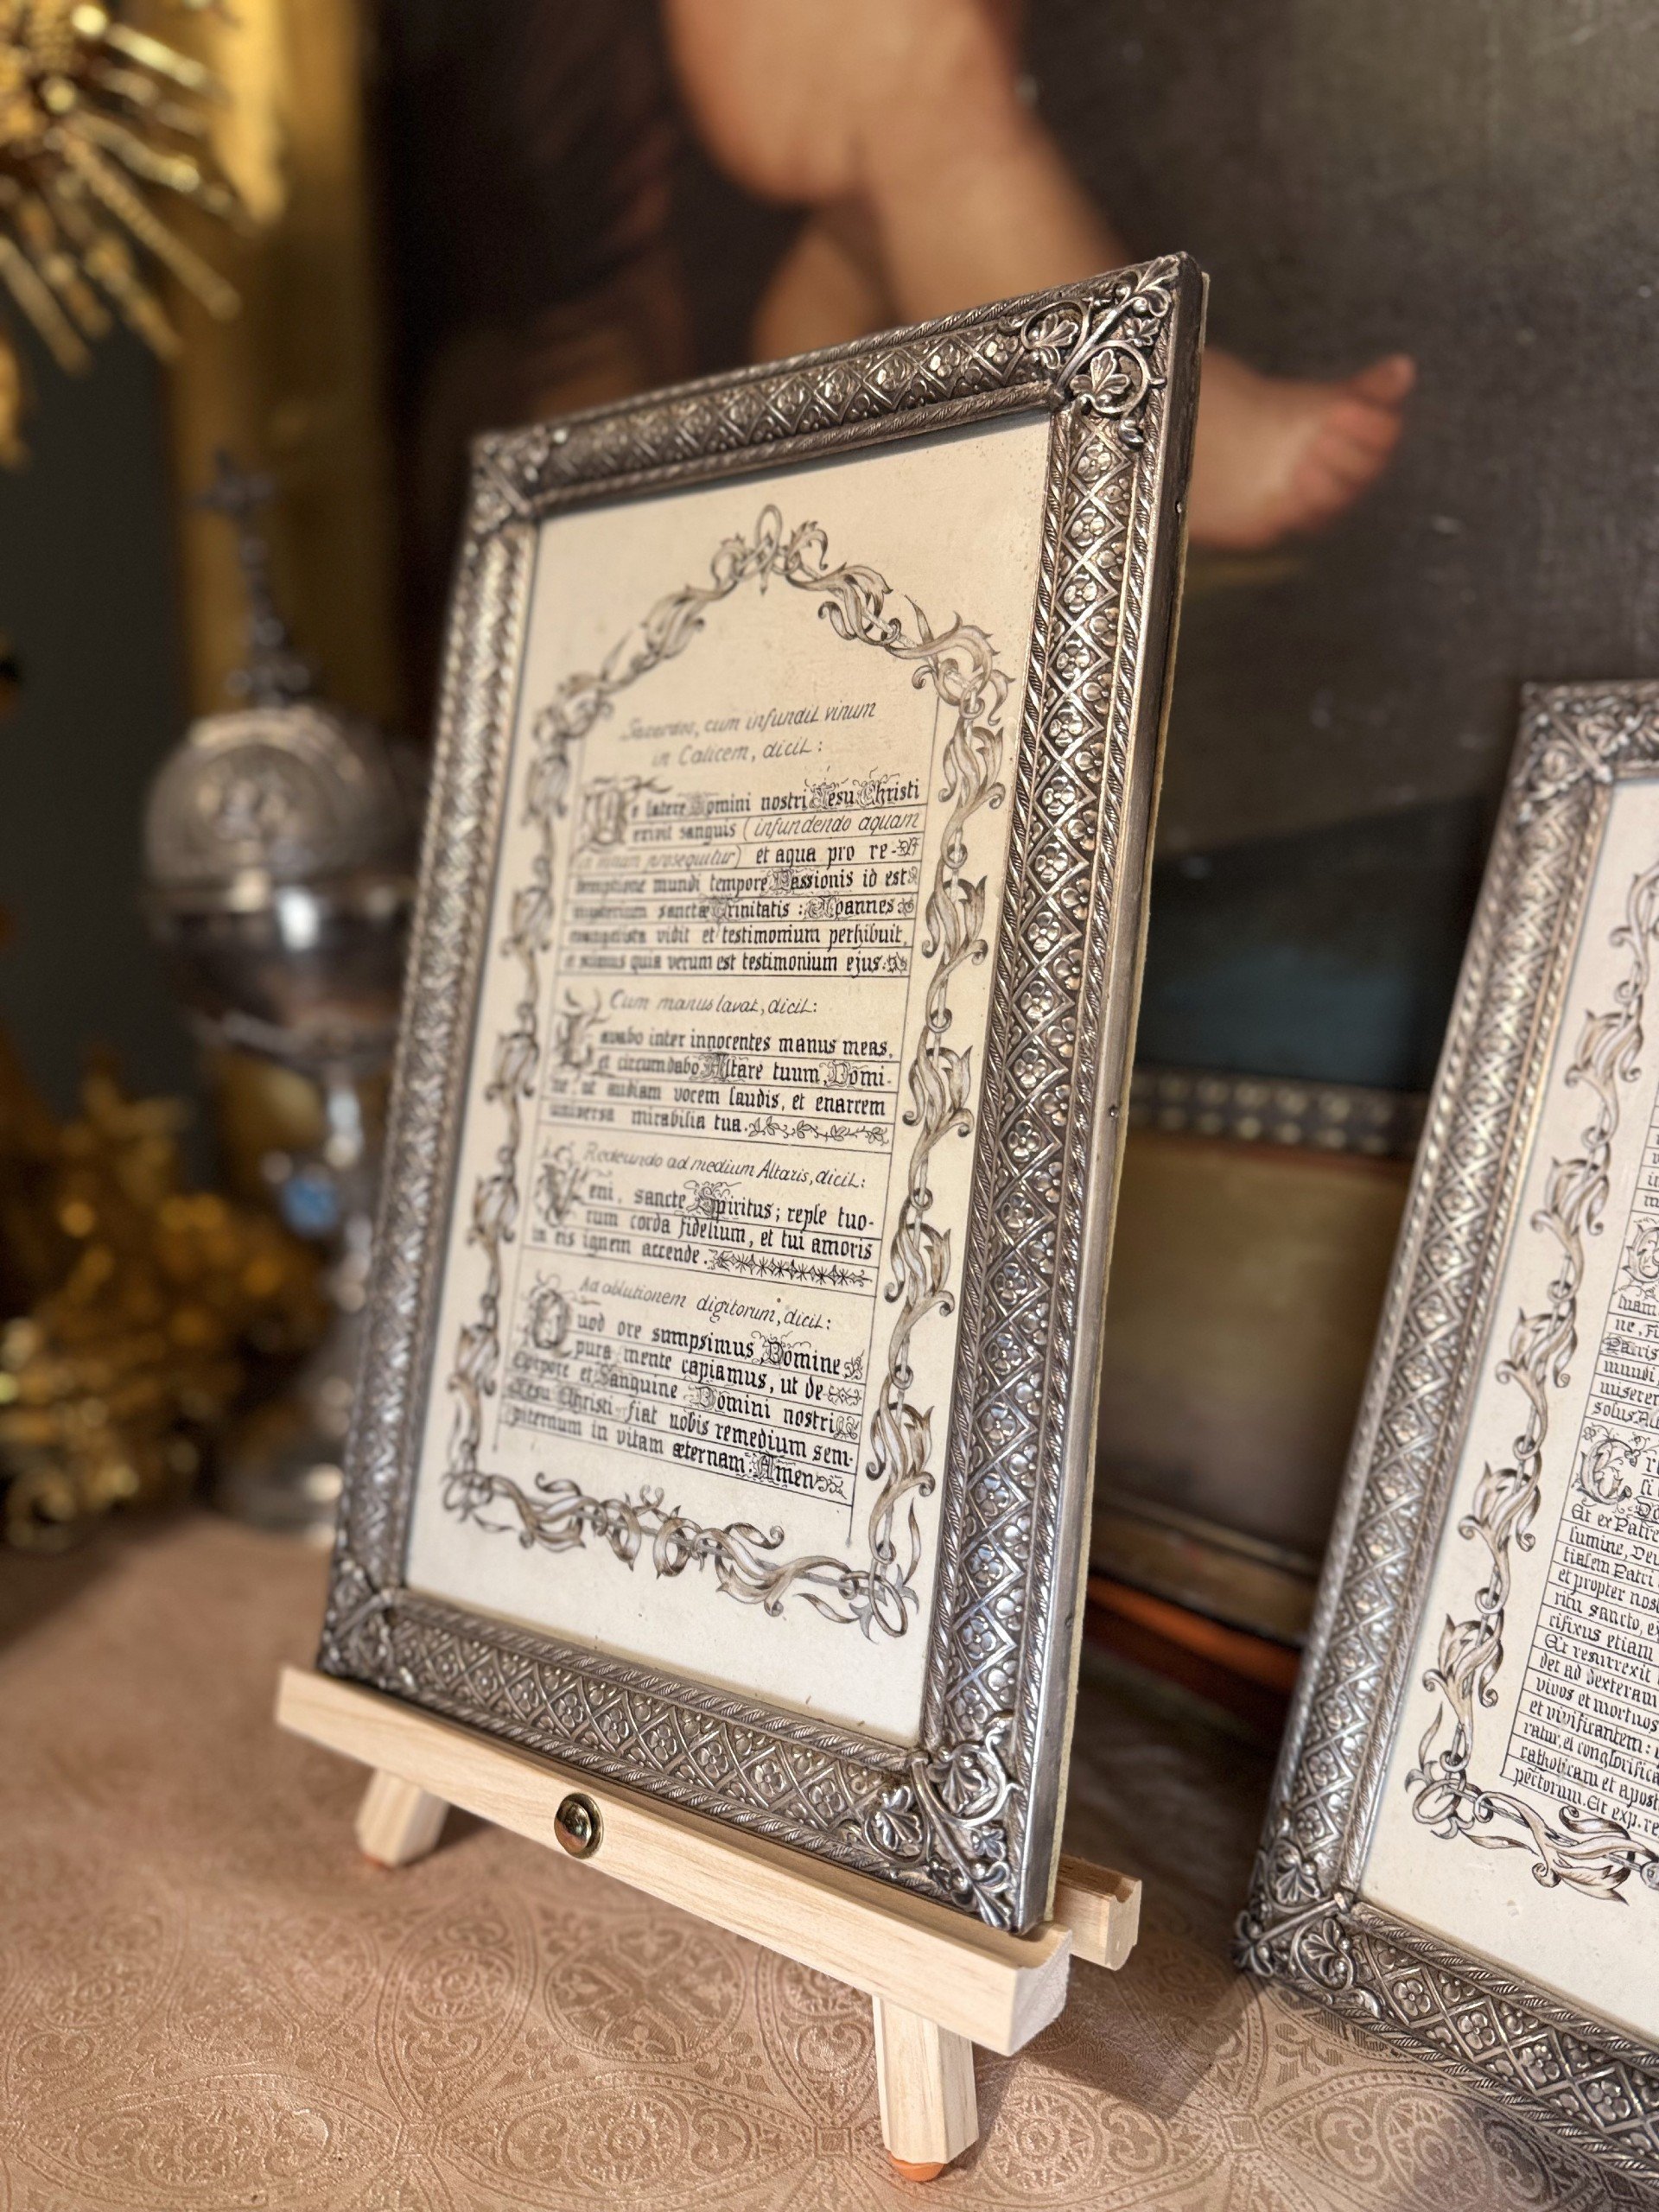 Sacerdos, cum infundit vinum
in Calicem, dicit:
De latere Domini nostri Jesu Christi
exivit sanguis (infundendo aquam
in vinum prosequitur) et aqua pro re-
demptione mundi tempore Passionis id est
misterium sanctæ Trinitatis: Joannes
evangelista vidit et testimonium perhibuit,
et scimus quia verum est testimonium ejus.
Cum manus lavat, dicit:
Lavabo inter innocentes manus meas,
et circumdabo Altare tuum, Domi-
ne, ut audiam vocem laudis, et enarrem
universa mirabilia tua.
Redeundo ad medium Altaris, dicit:
Veni, sancte Spiritus; reple tuo-
rum corda fidelium, et tui amoris
in eis ignem accende.
Ad oblutionem digitorum, dicit:
Quod ore sumpsimus Domine
pura mente capiamus, ut de
Corpore et Sanguine Domini nostri
Jesu Christi fiat nobis remedium sem-
piternum in vitam æternam. Amen
ne, Fi
Patris
mundi
miserer
solus Al
Et ex Patre
lumine, Deu
tialem Patri
et propter nost
ritu sancto, ex
cifixus etiam
Et resurrexit
det ad dexteram
vivos et mortuos
et vivificantem:
ratur, et conglorifica
catholicam et apost
pectorum. Et exp. re